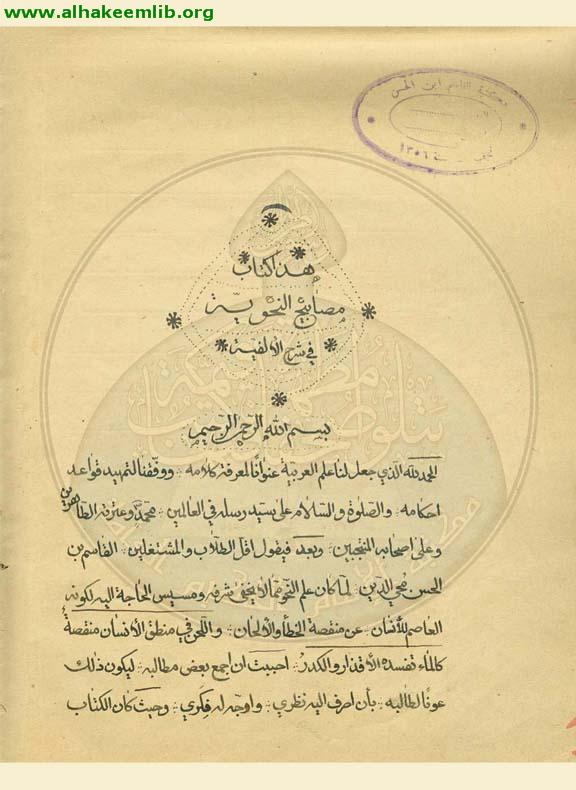 www.alhakeemlib.org
مكتبة القاسم ابن الحسن
١٣٥٦
هذا كتاب
مصابيح النحوية
في شرح الألفية
بسم الله الرحمن الرحيم
الحمد لله الذي جعل لنا علم العربية عنوانا لمعرفة كلامه ووفقنا لتمهيد قواعد
احكامه والصلوة والسلام على سيد رسله في العالمين محمد وعترته الطاهرين
وعلى اصحابه المنتجبين وبعد فيقول اقل الطلاب والمشتغلين القاسم بن
الحسن محيي الدين لما كان علم النحو مما لا يخفى شرفه ومسيس الحاجة اليه لكونه
العاصم للأنسان عن منقصة الخطأ والألحان واللحن في منطق الأنسان منقصة
كالماء تفسده الأقذار والكدر احببت ان اجمع بعض مطالبه ليكون ذلك
عونا لطالبه بأن اصرف اليه نظري واوجه له فكري وحيث كان الكتاب